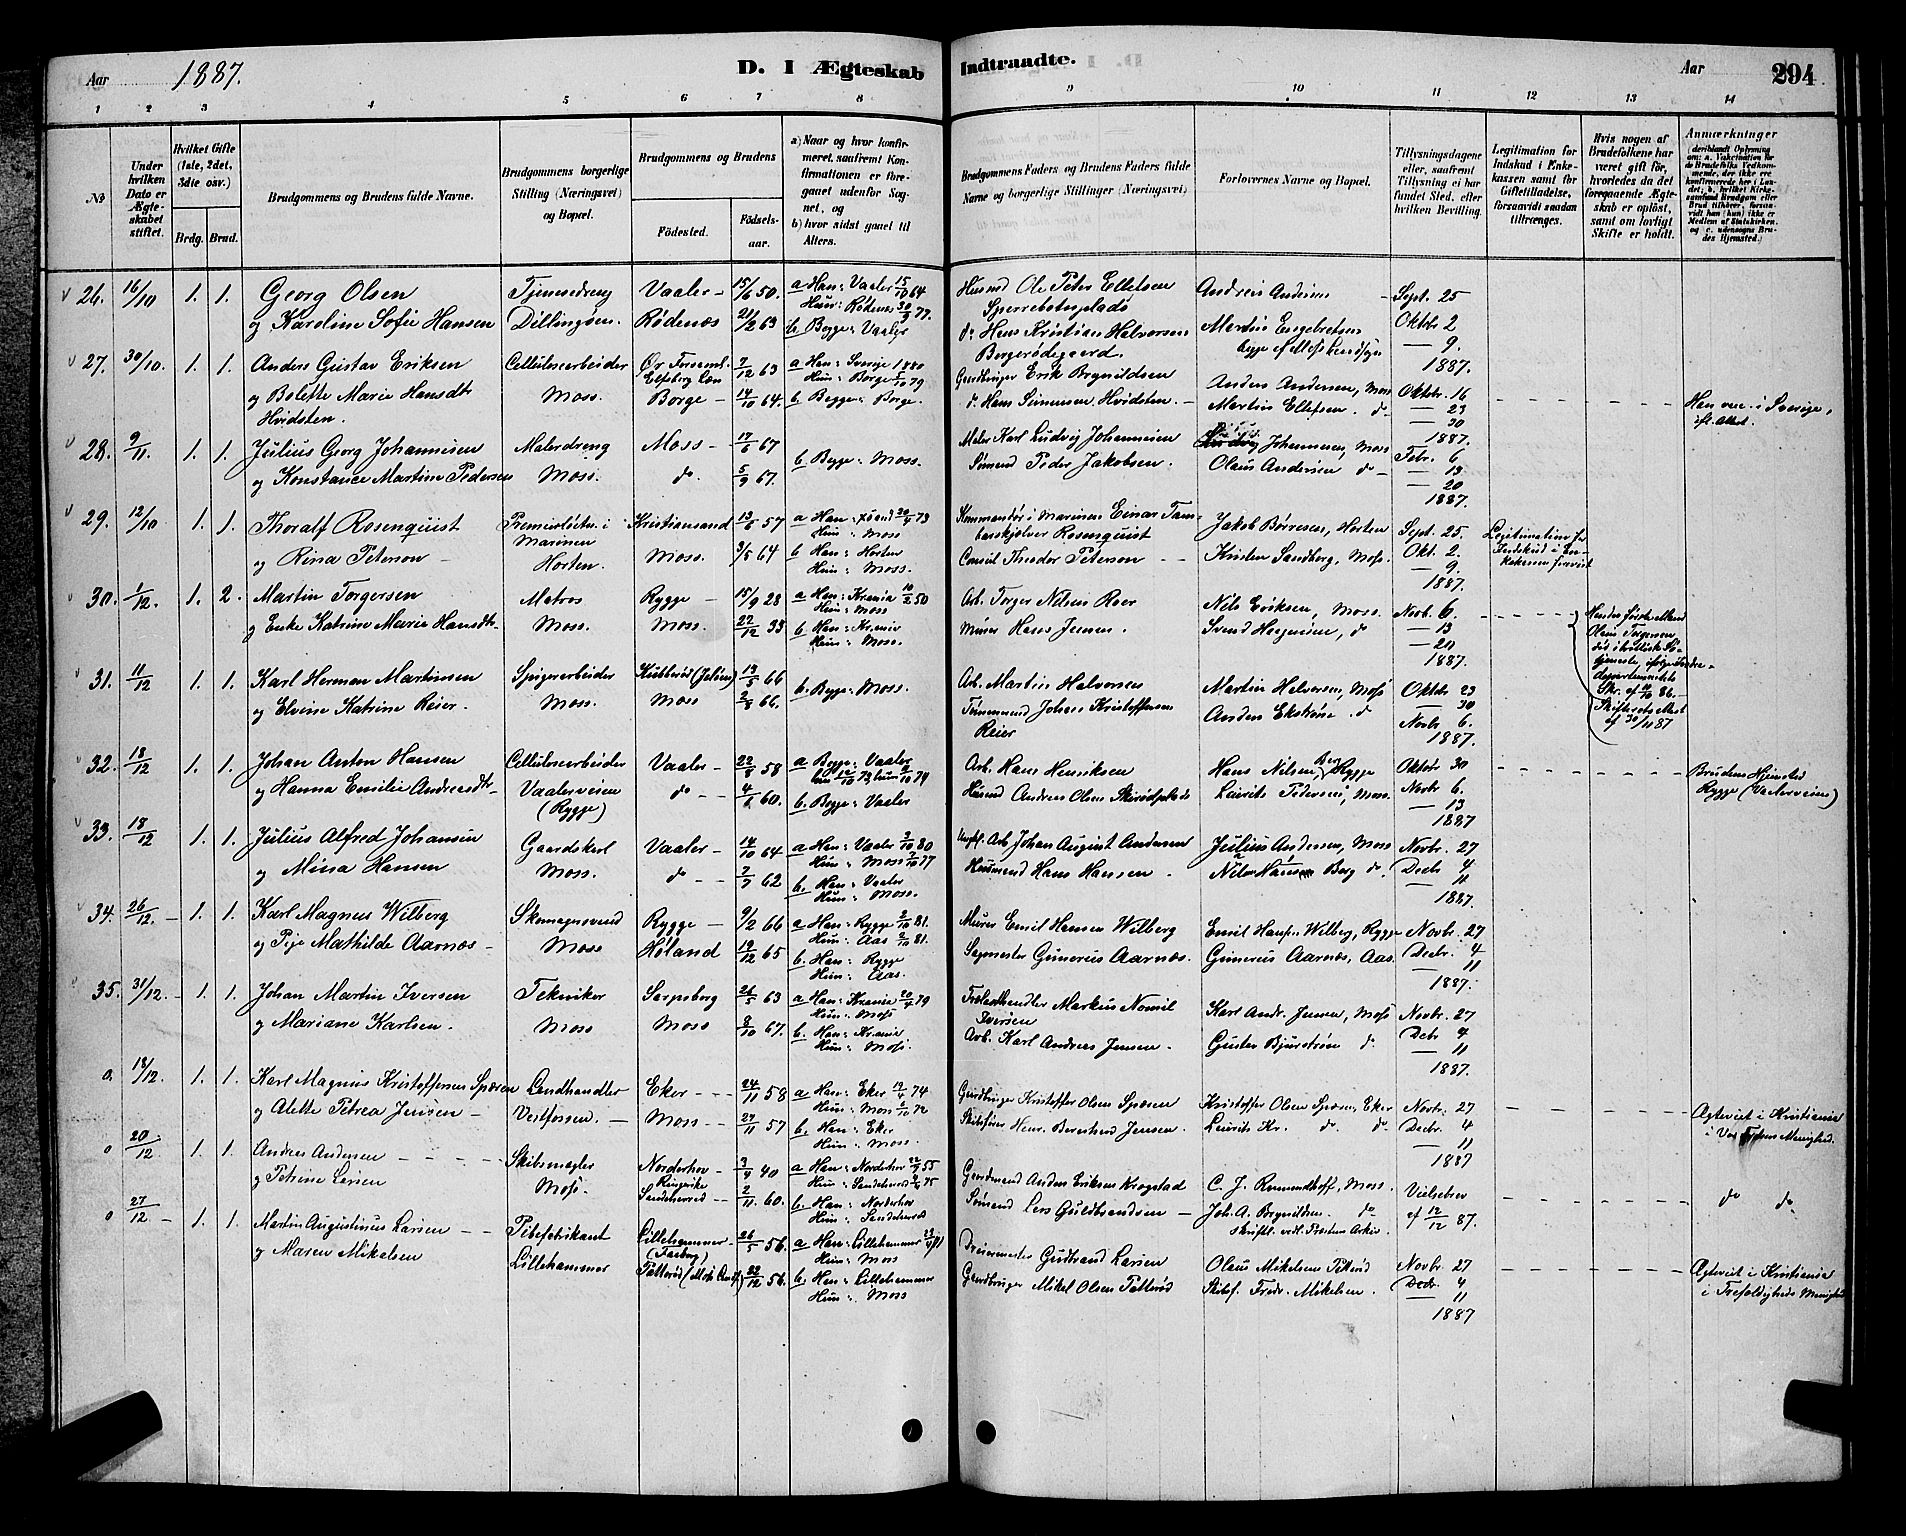 Aar 1887.
D. I Ægteskab Indtraadte.
Aar 294
1 2 3 4 5 6 7 8 9 10 11 12 13 14
No
Under hvilken Dato er Ægteskabet stiftet.
Hvilket Gifte (1ste, 2det, 3die osv.)
Brdg. Brud.
Brudgommens og Brudens fulde Navne.
Brudgommens borgerlige Stilling (Næringsvei) og Bopæl.
Brudgommens og Brudens
Fødested.
Fødselsaar.
a) Naar og hvor konfirmeret, saafremt Konfirmationen er foregaaet udenfor Sognet, og
b) hvor sidst gaaet til Alters.
Brudgommens Faders og Brudens Faders fulde Navne og borgerlige Stillinger (Næringsvei)
Forlovernes Navne og Bopæl.
Tillysningsdagene eller, saafremt Tillysning ei har fundet Sted, efter hvilken Bevilling.
Legitimation for Indskud i Enkekassen samt for Giftetilladelse, forsaavidt saadan tiltrænges.
Hvis nogen af Brudefolkene har været gift før, hvorledes da det foregaaende Ægteskab er opløst, samt om lovligt Skifte er holdt.
Anmærkninger
26. 16/10 1. 1. Georg Olsen
og Karoline Sofie Hansen
Tjenestedreng
Dillingøen.
Vaaler 15/6 50.
Rødenæs 21/2 63
a Han: Vaaler 15/10 64
Hun: Rødenæs 30/9 77.
b. Begge: Vaaler
Husmd Ole Peter Ellefsen
do Hans Kristian Halvorsen
Andreas Andersen
Martin Engebretsen
Sept. 25
Oktbr 2
— 9.
1887.
27. 30/10. 1. 1. Anders Gustav Eriksen
og Bolette Marie Hansdtr
Hvidsten.
Cellulosearbeider
Moss.
Borge 14/10 64.
a Han: Sverige 1880
Hun: Borge 5/10 79
b Begge: Borge.
Gaardbruger Erik Brynildsen
d. Hans Simensen Hvidsten
Anders Andersen, Moss
Martin Ellefsen. do
Oktbr. 16
— 23
— 30
1887.
28. 9/11. 1. 1. Julius Georg Johannesen
og Konstance Martine Pedersen
Malerdreng
Moss.
Moss 17/6 67
do. 5/9 67.
b Begge: Moss.
Maler Karl Ludvig Johannesen
Sømand Peder Jakobsen.
Johannesen, Moss
Olaus Andersen do
Febr. 6
— 13
— 20
1887.
29. 12/10 1. 1. Thoralf Rosenquist
og Rina Peterson
Premierløitn. i
Marinen
Horten.
Kristiansand 13/6 57
Moss. 3/5 64
Hun: Moss
b Han: Horten
Hun: Moss.
Kommandør i Marinen Einar Tam-
barskjelver Rosenquist
Consul Theodor Peterson
Jakob Børresen, Horten
Kristen Sandberg, Moss.
Sept. 25.
Okt. 2.
— 9.
1887.
Legitimation for
Indskud i En-
kekassen forevist
30. 1/12. 1. 2. Martin Torgersen
og Enke Katrine Marie Hansdtr.
Matros
Moss.
Rygge 15/9 28
Moss. 22/12 33
a Han: Krania 50
Hun: Moss
b. Han: Krania
Hun: Moss.
Arb. Torger Nilsen Reer
Murer Hans Jensen.
Nils Eriksen, Moss.
Svend do
Novb. 6.
— 13
— 20
1887.
31. 11/12 1. 1. Karl Herman Martinsen
og Elvine Katrine Reier.
Spigerarbeider
Moss.
Kubberød (Jeløen) 13/5 66
Moss 2/8 66.
b. Begge: Moss.
Arb. Martin Halvorsen
Tømmermd Johan Kristoffersen
Reier
Martin Halvorsen, Moss
Anders Ekstrøm. do
Oktbr 23
— 30
Novbr. 6.
1887.
32. 18/12 1. 1. Johan Anton Hansen
og Hanna Emilie Andreasdtr.
Cellulosearbeider
Vaalerveien
(Rygge)
Vaaler 22/8 58
do 60.
a Begge: Vaaler
b. Begge: Vaaler
Arb. Hans Henriksen
Husmd Andreas Olsen
Hans Nilsen, Rygge
Laurits Pedersen, Moss.
Oktbr 30
Novbr. 6.
— 13
1887
Brudens Hjemsted
Rygge (Vaalerveien)
33. 18/12 1. 1. Julius Alfred Johansen
og Mina Hansen
Gaardskarl
Moss.
Vaaler 14/10 64
do 2/7 62
a Han: Vaaler 3/10 80
Hun: Moss 7/10 77
b. Han: Vaaler
Hun: Moss.
Arb Johan August Andersen
Husmand Hans Hansen.
Julius Andersen, Moss
Nils Berg do.
Novbr. 27
Decbr. 4
— 11
1887.
34. 26/12. 1. 1. Karl Magnus Wilberg
og Pije Mathilde Aarnæs
Skomagersvend
Moss
Rygge 9/2 66
Høland 19/12 65
a Han: Rygge 2/10 81.
Hun: Aas 2/10 81.
b. Han: Rygge
Hun: Aas.
Murer Emil Hansen Wilberg
Sagmester Gunerius Aarnæs.
Emil Hansen Wilberg, Rygge
Gunerius Aarnæs, Aas.
Novbr. 27
Decbr. 4
— 11
1887.
35. 31/12. 1. 1. Johan Martin Iversen
og Mariane Karlsen.
Tekniker
Moss
Sarpsborg 26/5 63
Moss 8/10 67.
a Han: Krania 20/4 79
Hun: Moss
b. Han: Krania
Hun: Moss.
Iversen
Arb. Karl Andreas Jensen.
Karl Andr. Jensen, Moss
Gustav Bjurstrøm do.
Novbr. 27
Decbr 4
— 11
1887.
18/12. 1. 1. Karl Magnus Kristoffersen Spæren
og Alette Petrea Jensen
Landhandler
Vestfossen.
Eker 24/11 58
Moss 27/11 57
a Han: Eker 74
Hun: Moss 72
b. Han: Eker
Hun: Moss.
Gaardbruger Kristoffer Olsen Spæren
Skibsfører Henr. Bernhard Jensen.
Kristoffer Olsen Spæren, Eker
Laurits Kr. do. do
Novbr. 27
Decbr. 4
— 11
1887
Ægteviet i Kristiania
i Vor Frelsers Menighed.
20/12 1. 1. Andreas Andersen
og Petrine Larsen
Skibsmægler
Moss.
Norderhov
Ringerike 3/4 40
Sandeherred 2/11 60.
a Han: Norderhov 55
Hun: Sandeherred 75
b. Han: Norderhov
Hun: Sandeherred
Gaardmand Anders Eriksen Krogstad
Sømand Lars Guldbrandsen
C. J. Rosmundhoff, Moss.
Joh. A. Brynildsen. do
Vielsesbrev
af 12/12 87.
do do
27/12 1. 1. Martin Augustinus Larsen
og Maren Mikelsen
Pibefabrikant
Lillehammer
Lillehammer
(Faaberg) 26/5 56.
Tatterød (Moss Landd.) 22/12 56.
a Han: Lillehammer
Hun: Moss
b. Han: Lillehammer
Hun: Moss
Dreiermester Gudbrand Larsen
Gaardbruger Mikel Olsen Tatterød
Olaus Mikelsen Tatterød
Skibsf. Fredr. Mikelsen.
Novbr. 27
Decbr. 4
— 11
1887
Ægteviet i Kristiania
i Trefoldigheds Menighed